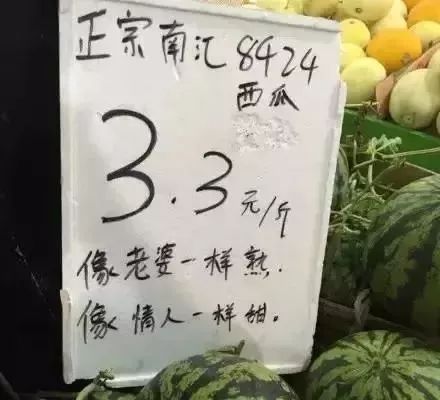 正宗南汇8424
西瓜
3.3元/斤
像老婆一样熟.
像情人一样甜。